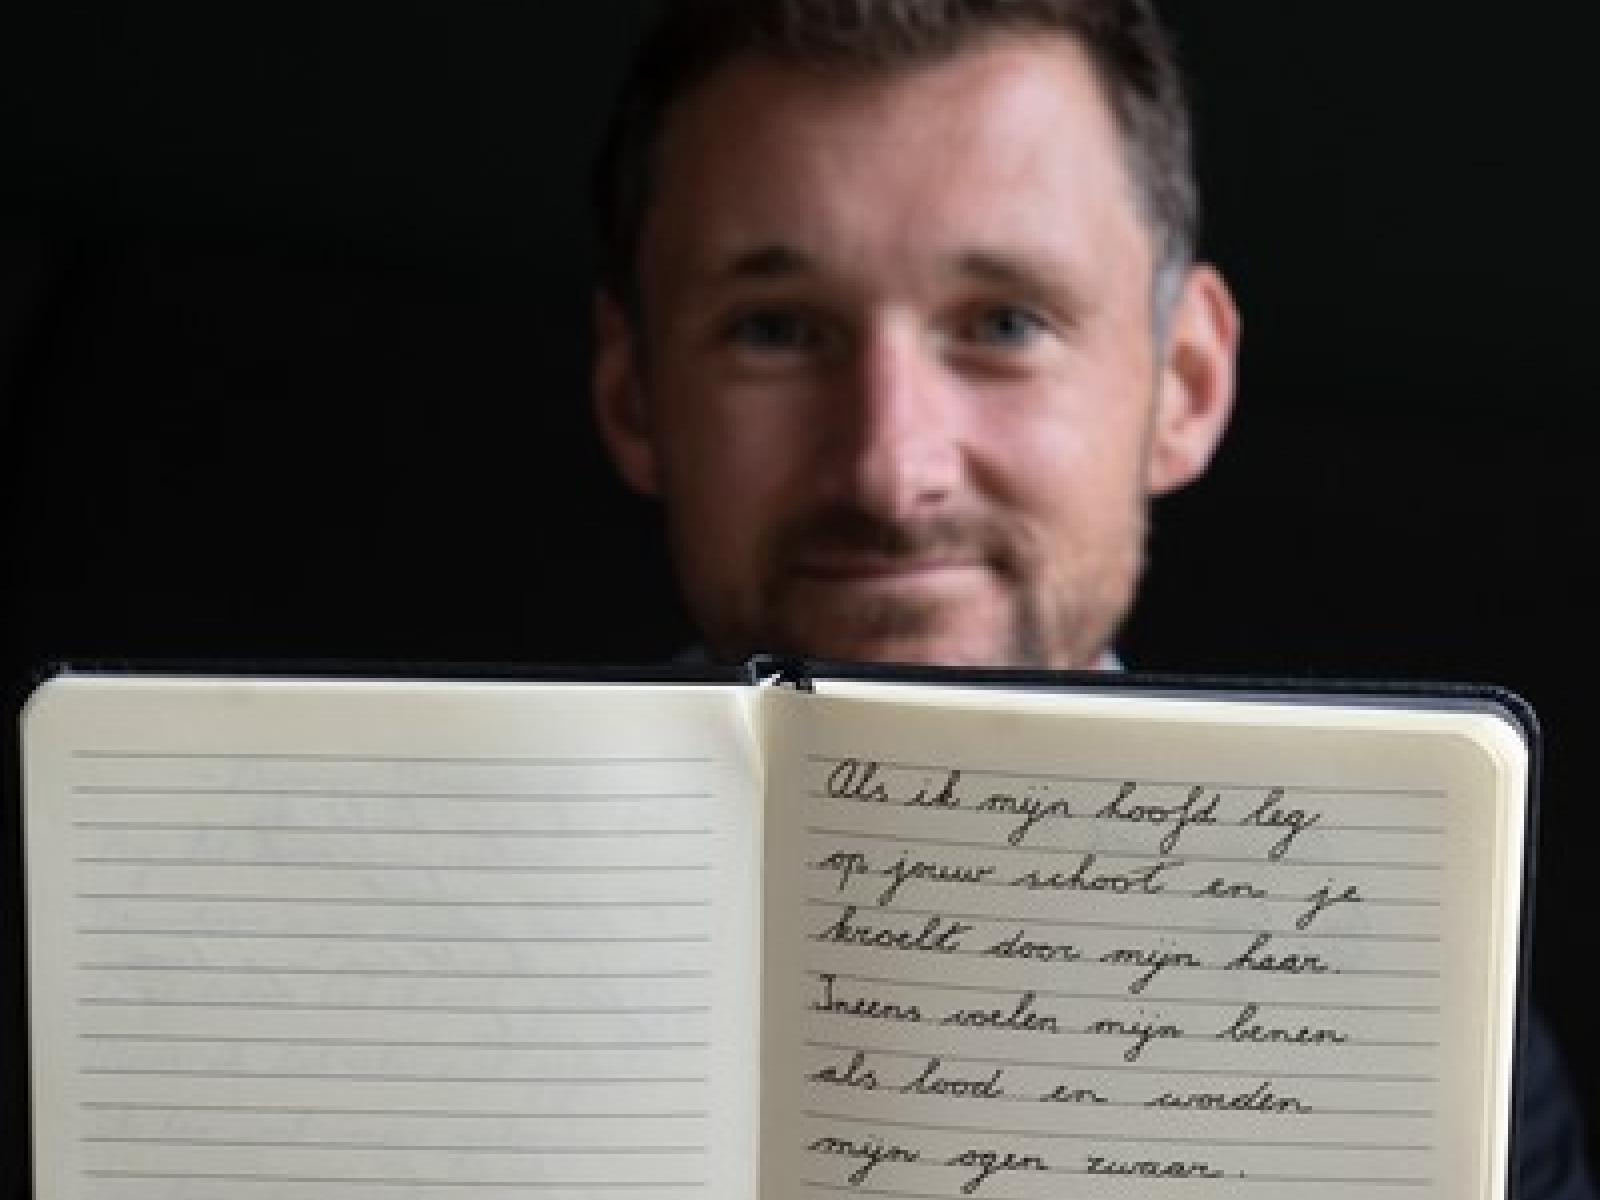 Als ik mijn hoofd leg
op jouw schoot en je
kroelt door mijn haar.
Ineens voelen mijn benen
als lood en worden
mijn ogen zwaar.